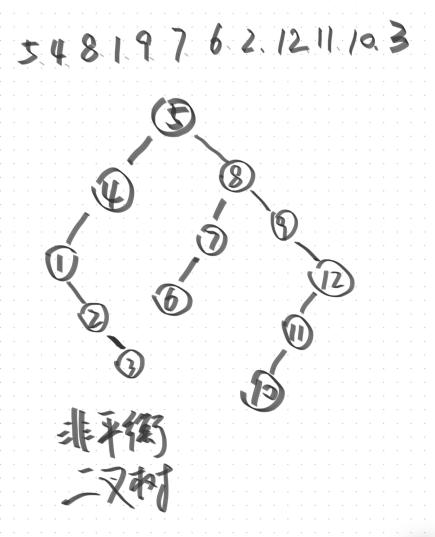 5 4 8 1. 9 7 6. 2. 12 11. 10. 3
5
4
8
1
7
9
2
6
12
3
11
10
非平衡
二叉树